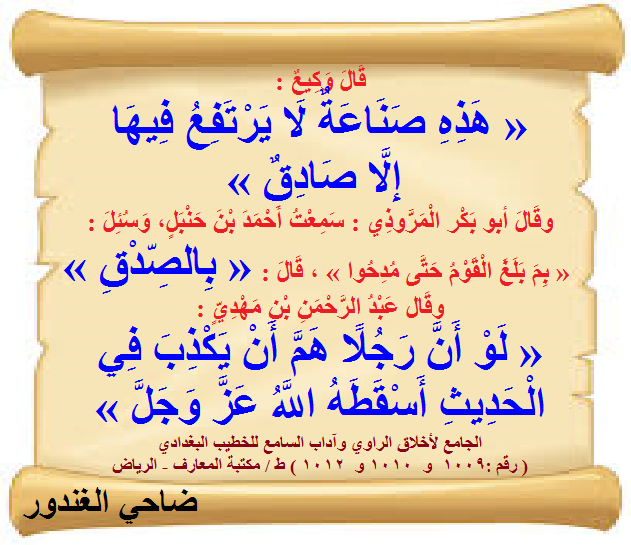 قَالَ وَكِيعٌ :
« هَذِهِ صَنَاعَةٌ لَا يَرْتَفِعُ فِيهَا
إِلَّا صَادِقٌ »
وقَالَ أبو بَكْر الْمَرَّوذِي : سَمِعْتُ أَحْمَدَ بْنَ حَنْبَلٍ، وَسُئِلَ :
« بِمَ بَلَغَ الْقَوْمُ حَتَّى مُدِحُوا » ، قَالَ : « بِالصِّدْقِ »
وقَال عَبْدُ الرَّحْمَنِ بْنِ مَهْدِيٍّ :
« لَوْ أَنَّ رَجُلًا هَمَّ أَنْ يَكْذِبَ فِي
الْحَدِيثِ أَسْقَطَهُ اللَّهُ عَزَّ وَجَلَّ »
الجامع لأخلاق الراوي وآداب السامع للخطيب البغدادي
( رقم :١٠٠٩ و ١٠١٠ و ١٠١٢ ) ط / مكتبة المعارف - الرياض
ضاحي الغندور